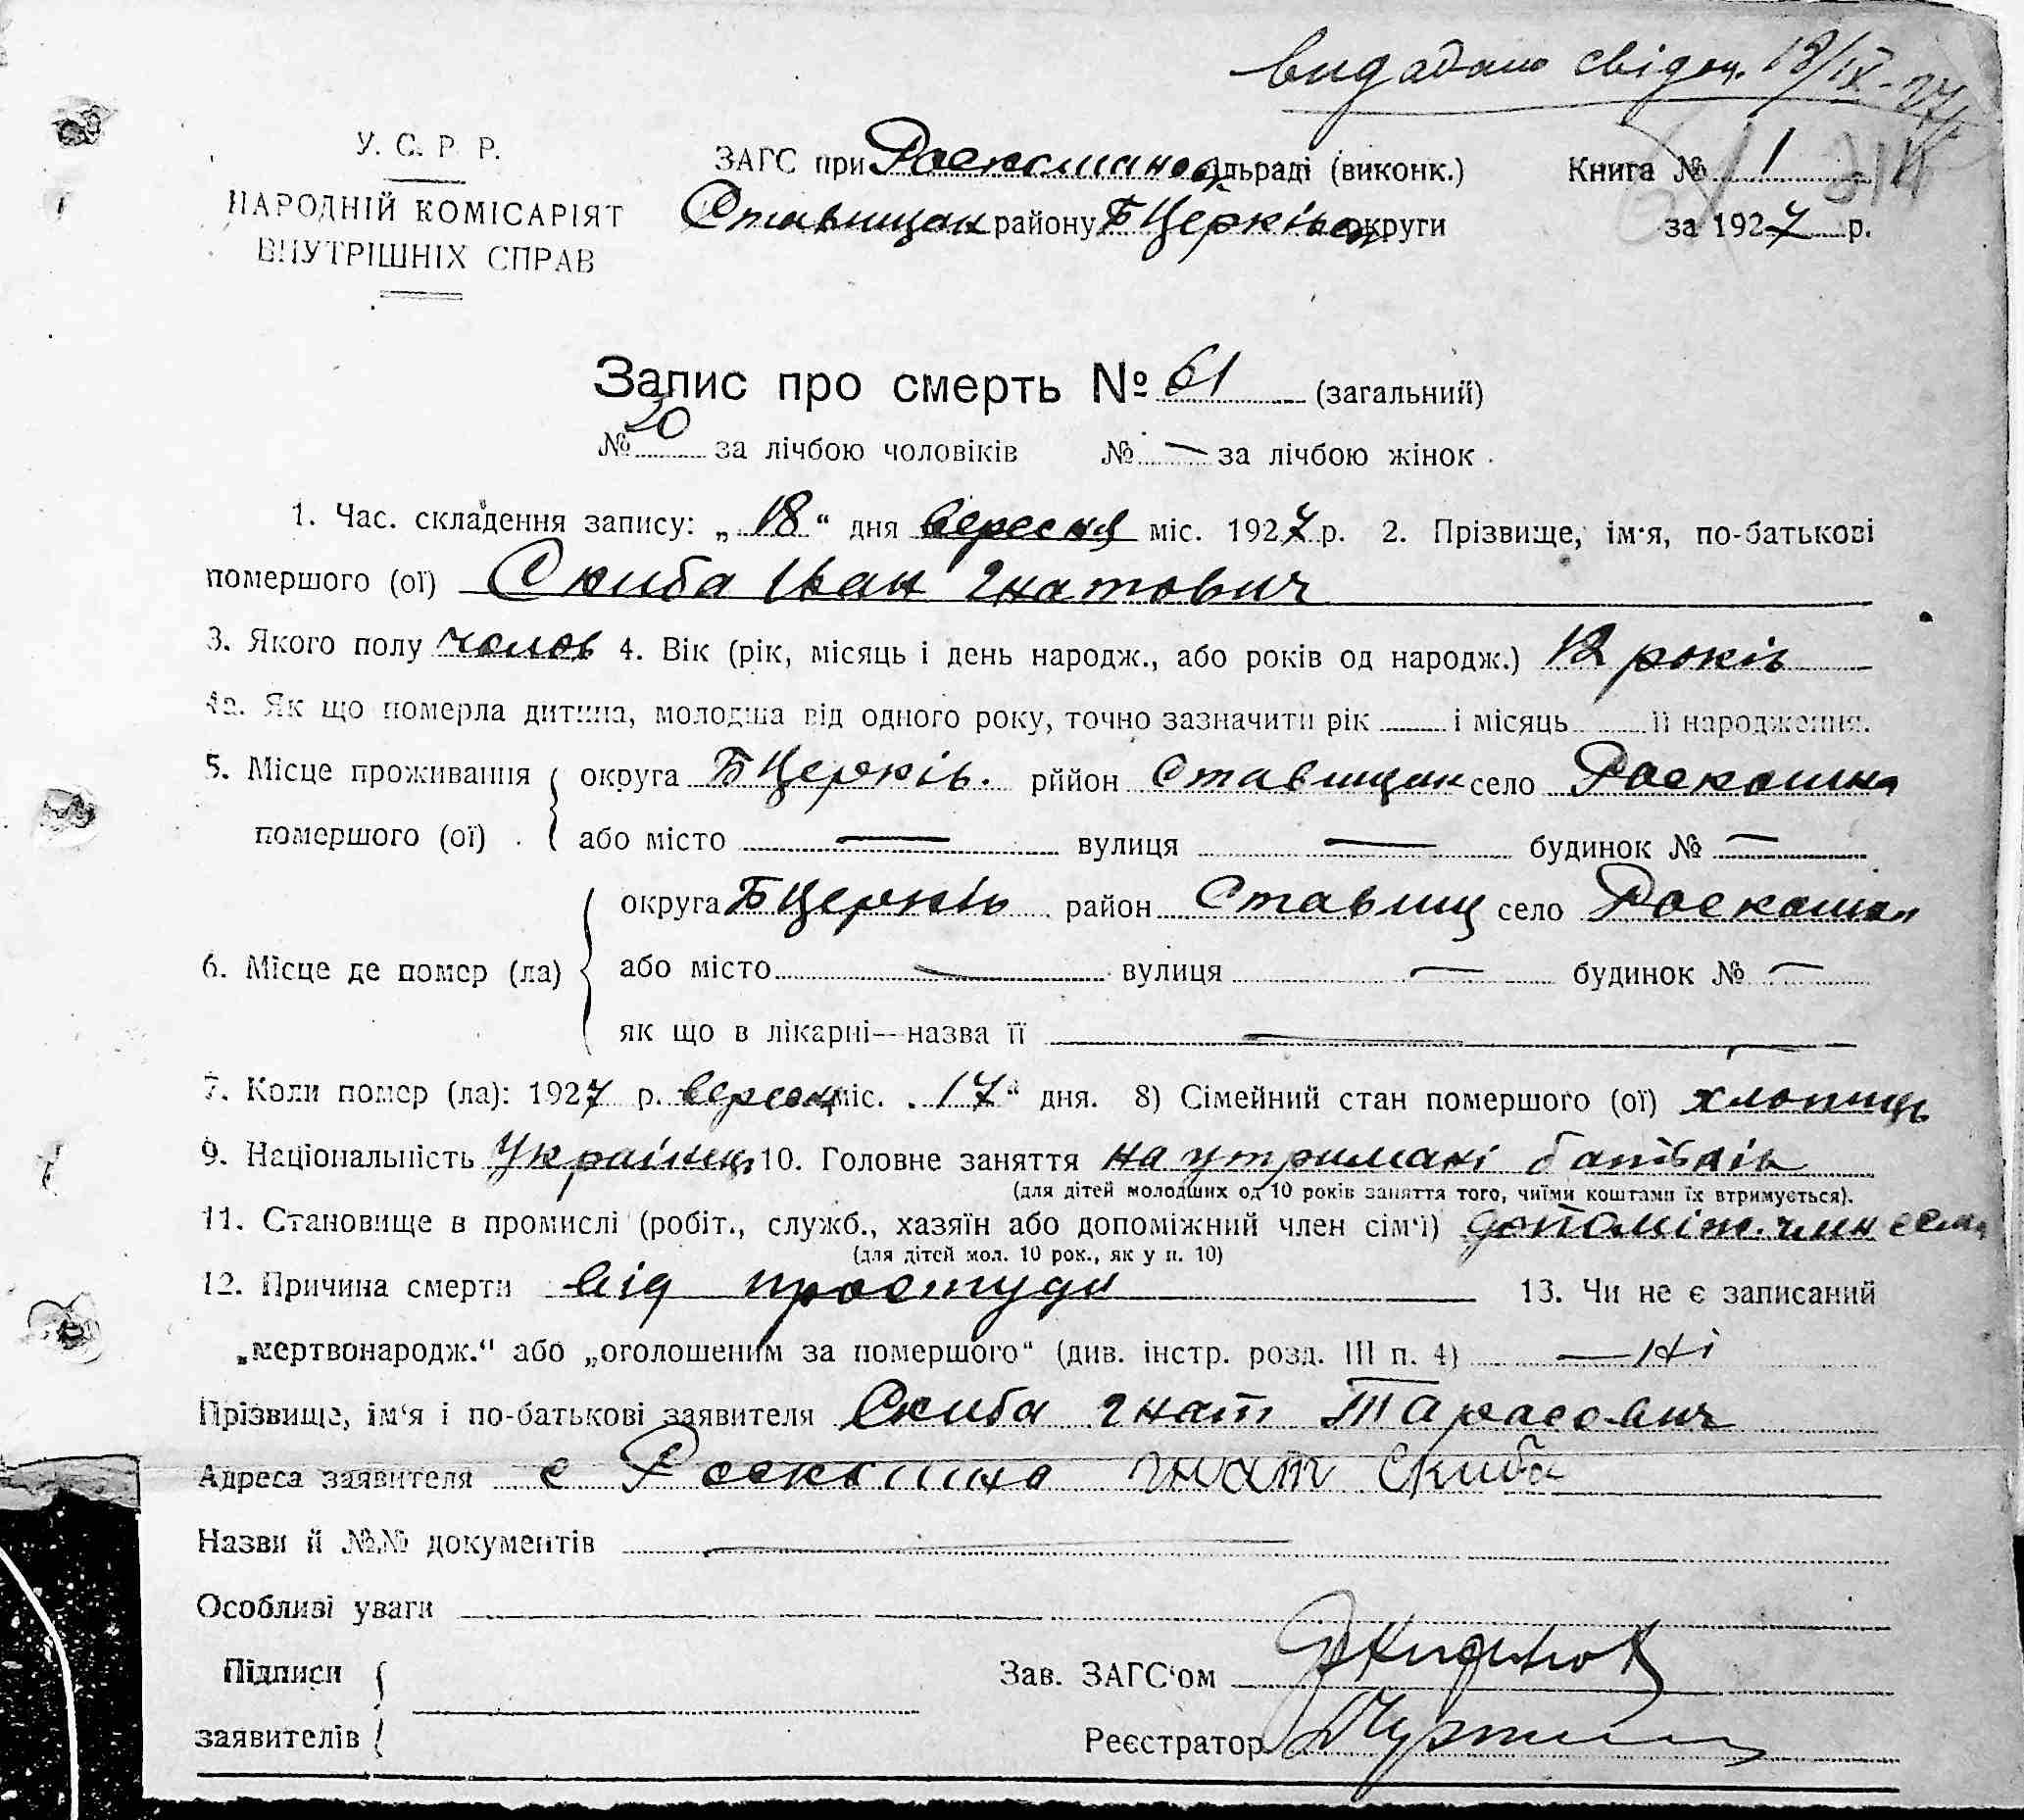 видадано свідоц. 18/IX-27
У. С. Р. Р.
НАРОДНІЙ КОМІСАРІЯТ
ВНУТРІШНІХ СПРАВ
ЗАГС при Роскошанов ільраді (виконк.)
Ставищан району БЦерківск округи
Книга № 1
за 1927 р.
Запис про смерть № 61 (загальний)
№ 30 за лічбою чоловіків № — за лічбою жінок
1. Час. складення запису: „18“ дня вересня міс. 1927 р. 2. Прізвище, ім'я, по-батькові
помершого (ої) Скиба Іван Гнатович
3. Якого полу чолов 4. Вік (рік, місяць і день народж., або років од народж.) 12 років
4а. Як що померла дитина, молодша від одного року, точно зазначити рік і місяць її народження.
5. Місце проживання округа БЦерків. рййон Ставищан село Роскошна
помершого (ої) або місто — вулиця — будинок № —
округа БЦерків район Ставищ село Роскошна
6. Місце де помер (ла) або місто — вулиця — будинок № —
як що в лікарні—назва її —
7. Коли помер (ла): 1927 р. вересня міс. „17“ дня. 8) Сімейний стан помершого (ої) хлопиць
9. Національність Українць 10. Головне заняття на утримані батьків
(для дітей молодших од 10 років заняття того, чиїми коштами їх втримується).
11. Становище в промислі (робіт., служб., хазяїн або допоміжний член сім'ї) допоміж. член семи
(для дітей мол. 10 рок., як у п. 10)
12. Причина смерти від простуди 13. Чи не є записаний
„мертвонародж.“ або „оголошеним за помершого“ (див. інстр. розд. III п. 4) — ні
Прізвище, ім'я і по-батькові заявителя Скиба Гнат Тарасович
Адреса заявителя с Роскошна Гнат Скиба
Назви й №№ документів —
Особливі уваги
Підписи
заявителів
Зав. ЗАГС'ом
Реєстратор